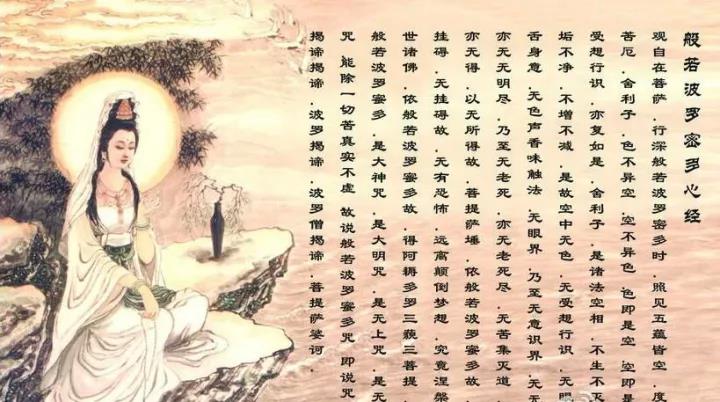 般若波罗密多心经
观自在菩萨.行深般若波罗密多时.照见五蕴皆空.度
苦厄.舍利子.色不异空.空不异色.色即是空.空即是
受想行识.亦复如是.舍利子.是诸法空相.不生不灭
垢不净.不增不减.是故空中无色.无受想行识.无眼
舌身意.无色声香味触法.无眼界.乃至无意识界.无无
亦无无明尽.乃至无老死.亦无老死尽.无苦集灭道.
亦无得.以无所得故.菩提萨埵.依般若波罗密多故.
挂碍.无挂碍故.无有恐怖.远离颠倒梦想.究竟涅槃
世诸佛.依般若波罗密多故.得阿耨多罗三藐三菩提.
般若波罗密多.是大神咒.是大明咒.是无上咒.是无
咒 能除一切苦真实不虚 故说般若波罗密多咒 即说咒
揭谛揭谛.波罗揭谛.波罗僧揭谛.菩提萨婆诃.